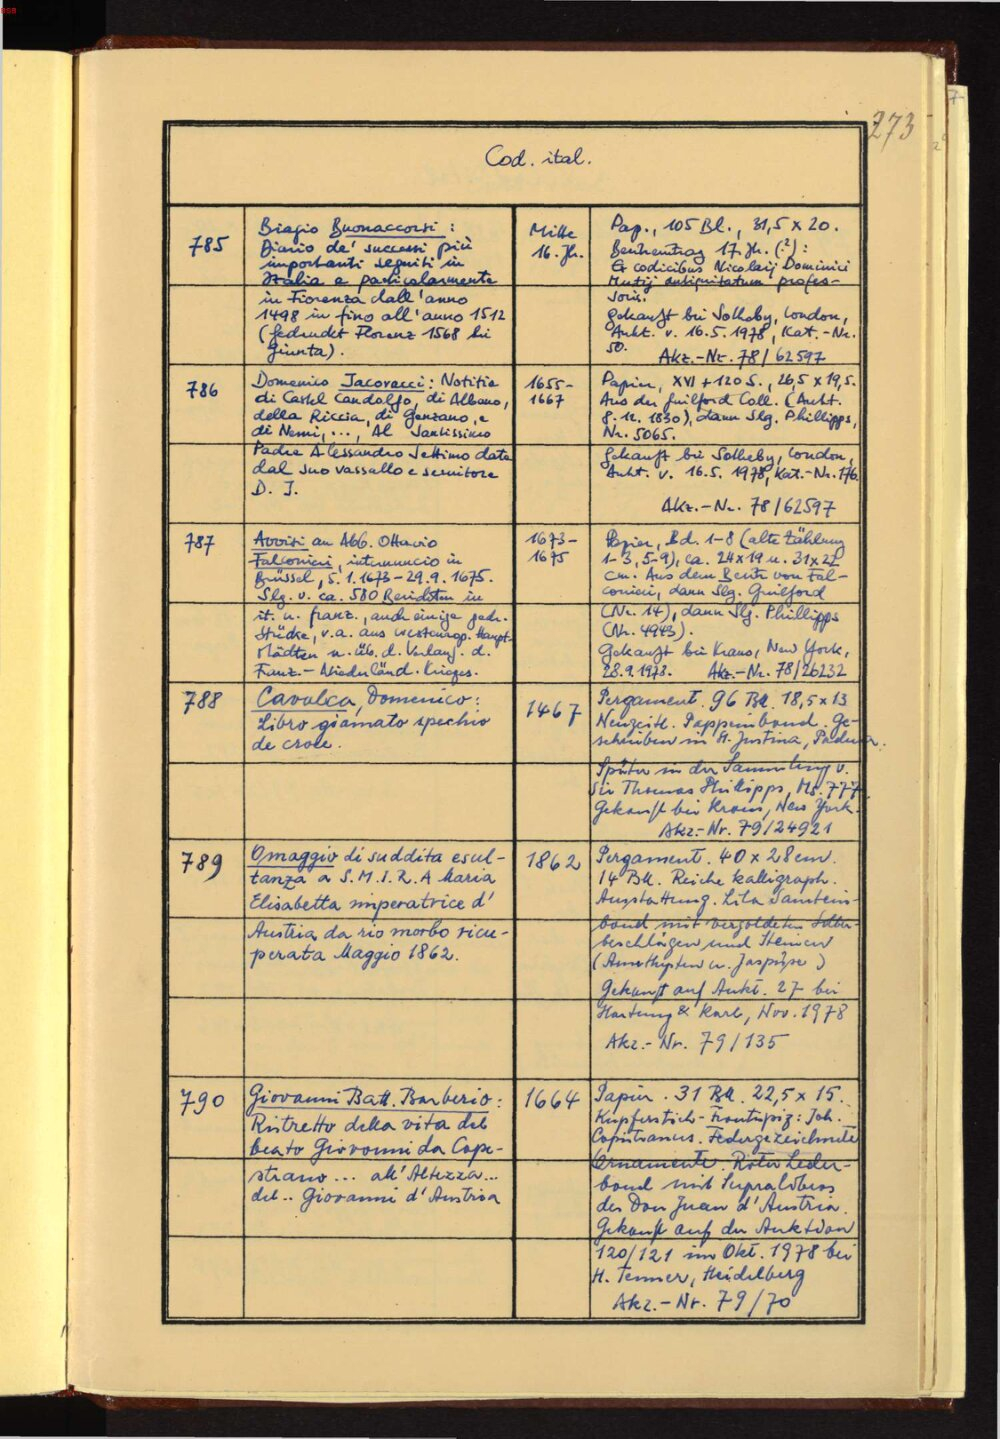 BSB
273
Cod. ital.
785
Biagio Buonaccorsi :
Diario de' successi più
importanti seguiti in
Italia e particolarmente
in Fiorenza dall'anno
1498 in fino all'anno 1512
(gedruckt Florenz 1568 bei
Giunta).
Mitte
16. Jh.
Pap., 105 Bl., 31,5 x 20.
Besitzeintrag 17. Jh. (?) :
Ex codicibus Nicolaij Dominici
Mutij antiquitatum profes-
soris.
Gekauft bei Sotheby, London,
Aukt. v. 16.5.1978, Kat.-Nr.
50.
Akz.-Nr. 78/62597
786
Domenico Jacovacci : Notitia
di Castel Candolfo, di Albano,
della Riccia, di Genzano, e
di Nemi, ..., Al Santissimo
Padre Alessandro Settimo data
dal suo vassallo e servitore
D. J.
1655-
1667
Papier, XVI + 120 S., 26,5 x 19,5.
Aus der Guilford Coll. (Aukt.
8.12.1830), dann Slg. Phillipps,
Nr. 5065.
Gekauft bei Sotheby, London,
Aukt. v. 16.5.1978, Kat.-Nr. 176.
Akz.-Nr. 78/62597
787
Avvisi an Abb. Ottavio
Falconieri, internuncio in
Brüssel, 5.1.1673-29.9.1675.
Slg. v. ca. 580 Berichten in
it. u. franz., auch einige gedr.
Stücke, v.a. aus westeurop. Haupt-
städten u. üb. d. Verlauf d.
Franz.-Niederländ. Krieges.
1673-
1675
Papier, Bd. 1-8 (alte Zählung
1-3, 5-9), ca. 24x19 u. 31x22
cm. Aus dem Besitz von Fal-
conieri, dann Slg. Guilford
(Nr. 14), dann Slg. Phillipps
(Nr. 4943).
Gekauft bei Kraus, New York,
28.9.1978. Akz.-Nr. 78/26232
788
Cavalca, Domenico :
Libro giamato spechio
de croce.
1467
Pergament. 96 Bll. 18,5 x 13
Neuzeitl. Pappeinband. Ge-
schrieben in St. Justina, Padua.
Später in der Sammlung v.
Sir Thomas Phillipps, Ms. 777.
Gekauft bei Kraus, New York.
Akz.-Nr. 79/24921
789
Omaggio di suddita esul-
tanza a S.M.I.R.A Maria
Elisabetta imperatrice d'
Austria da rio morbo ricu-
perata Maggio 1862.
1862
Pergament. 40 x 28 cm.
14 Bll. Reiche kalligraph.
Ausstattung. Lila Samtein-
band mit vergoldeten Silber-
beschlägen und Steinen
(Amethysten u. Jaspise)
Gekauft auf Aukt. 27 bei
Hartung & Karl, Nov. 1978
Akz.-Nr. 79/135
790
Giovanni Batt. Barberio :
Ristretto della vita del
beato Giovanni da Cape-
strano ... all'Altezza ...
del .. Giovanni d'Austria
1664
Papier. 31 Bll. 22,5 x 15.
Kupferstich-Frontispiz : Joh.
Capistranus. Federgezeichnete
Ornamente. Roter Leder-
band mit Supralibros
des Don Juan d'Austria.
Gekauft auf der Auktion
120/121 im Okt. 1978 bei
H. Tenner, Heidelberg
Akz.-Nr. 79/70